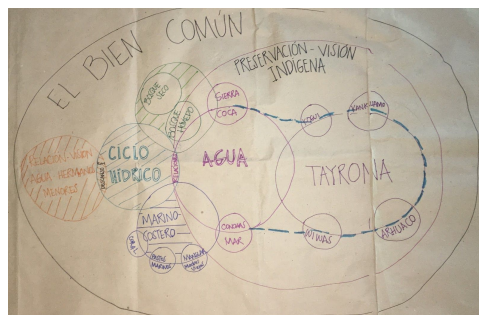 EL BIEN COMÚN
PRESERVACIÓN - VISIÓN
INDÍGENA
BOSQUE
SECO
BOSQUE
HÚMEDO
SIERRA
COCA
KOGUI
KANKUAMO
RELACIÓN VISIÓN
AGUA HERMANOS
MENORES
CICLO
HÍDRICO
AGUA
TAYRONA
MARINO-
COSTERO
CONCHAS
MAR
WIWAS
ARHUACO
CORAL
PASTOS
MARINOS